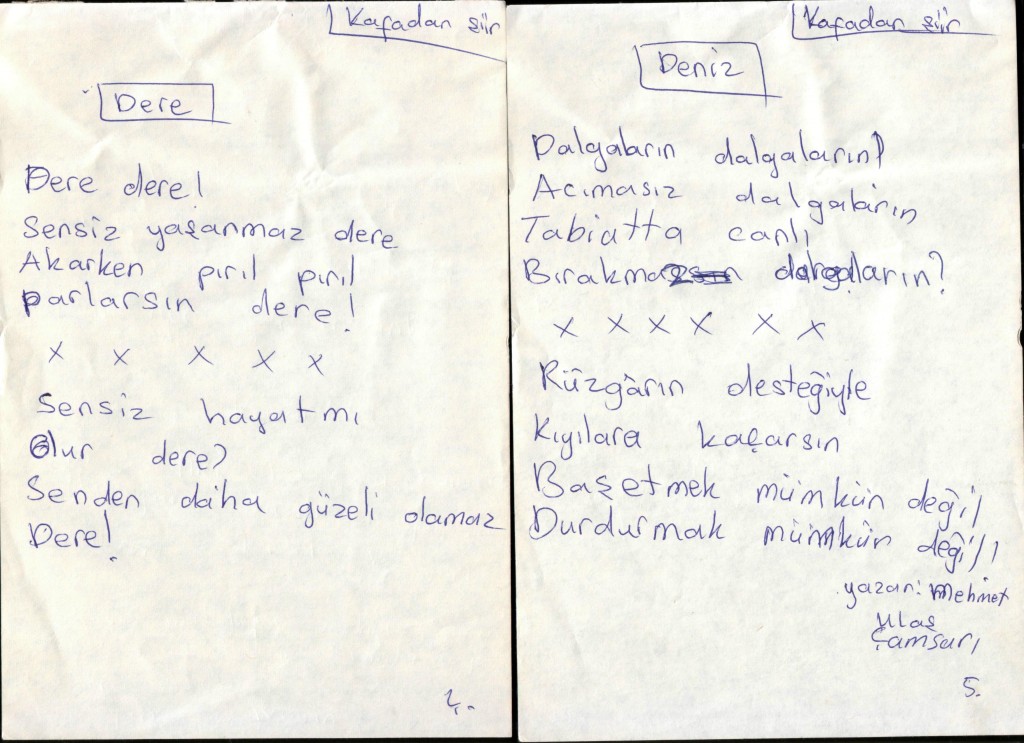 Kafadan şiir
Dere
Dere dere!
Sensiz yaşanmaz dere
Akarken pırıl pırıl
parlarsın dere!
x x x x x
Sensiz hayatmı
Olur dere?
Senden daha güzeli olamaz
Dere!
2.
Kafadan şiir
Deniz
Dalgaların dalgaların?
Acımasız dalgaların
Tabiatta canlı
Bırakmaz dalgaların?
x x x x x x
Rüzgârın desteğiyle
Kıyılara kaçarsın
Başetmek mümkün değil
Durdurmak mümkün değil!
yazan: Mehmet
Ulaş
Çamsarı
5.